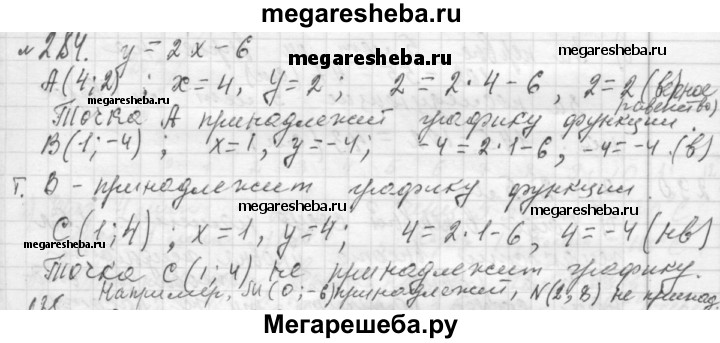 megaresheba.ru
№284. y = 2x - 6
A(4;2); x=4, y=2; 2=2·4-6, 2=2 (верное
равенство)
megaresheba.ru
megaresheba.ru
Точка A принадлежит графику функции.
B(1;-4); x=1, y=-4; -4=2·1-6, -4=-4 (в)
megaresheba.ru
Т. B - принадлежит графику функции.
megaresheba.ru
megaresheba.ru
C(1;4); x=1, y=4; 4=2·1-6, 4=-4 (нв)
megaresheba.ru
Точка C(1;4) не принадлежит графику.
Например, M(0;-6) принадлежит, N(2;8) не принад.
Мегарешеба.ру